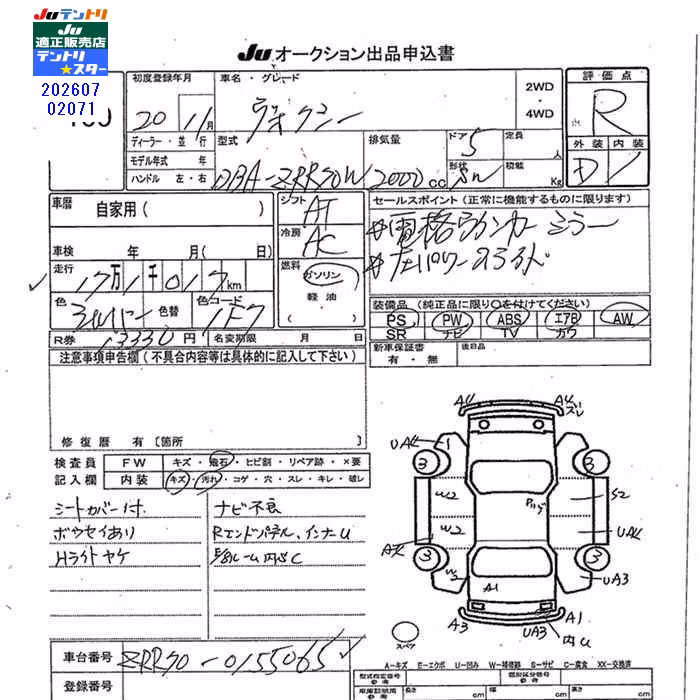 JUテントリ
JU
適正販売店
テントリ
★スター
202607
02071
JU オークション出品申込書
初度登録年月
車名・グレード
2WD
・
4WD
評価点
20 11月
ヴォクシー
R
ディーラー・並行
型式
排気量
ドア 5
定員
人
外装 内装
モデル年式 年
ハンドル 左・右
DBA-ZRR70W
2000cc
形状
積載
Kg
D
車暦
自家用 ( )
シフト AT
セールスポイント (正常に機能するものに限ります)
冷房 AC
車検 年 月( 日)
走行 17万1千017km
燃料 ガソリン
軽油
色 シルバー
色替
色コード 1F7
装備品 (純正品に限り○を付けてください)
PS PW ABS エアB AW
SR ナビ TV カワ
R券 13330円
名変期限 月 日
新車保証書
有・無
後日品
注意事項申告欄 (不具合内容等は具体的に記入して下さい)
修復歴 有 [箇所
検査員
記入欄
FW キズ・飛石・ヒビ割・リペア跡・×要
内装 キズ・汚れ・コゲ・穴・スレ・キレ・破レ
シートカバー付
ボウセイあり
Hライトヤケ
ナビ不良
Rエンドパネル、インナーU
A4 A4
スレ
UA4 1
3 3
W2 S2
W2 UA4
3 3
W2 UA3
A1
A3 UA3 A1
内U
スペア
A-キズ E-エクボ U-凹み W-補修跡 S-サビ C-腐食 XX-交換済
車台番号 ZRR70-0155065
登録番号
型式指定番号
参考
類別区分番号
参考
車庫証明用
長さ cm
幅 cm
高さ cm